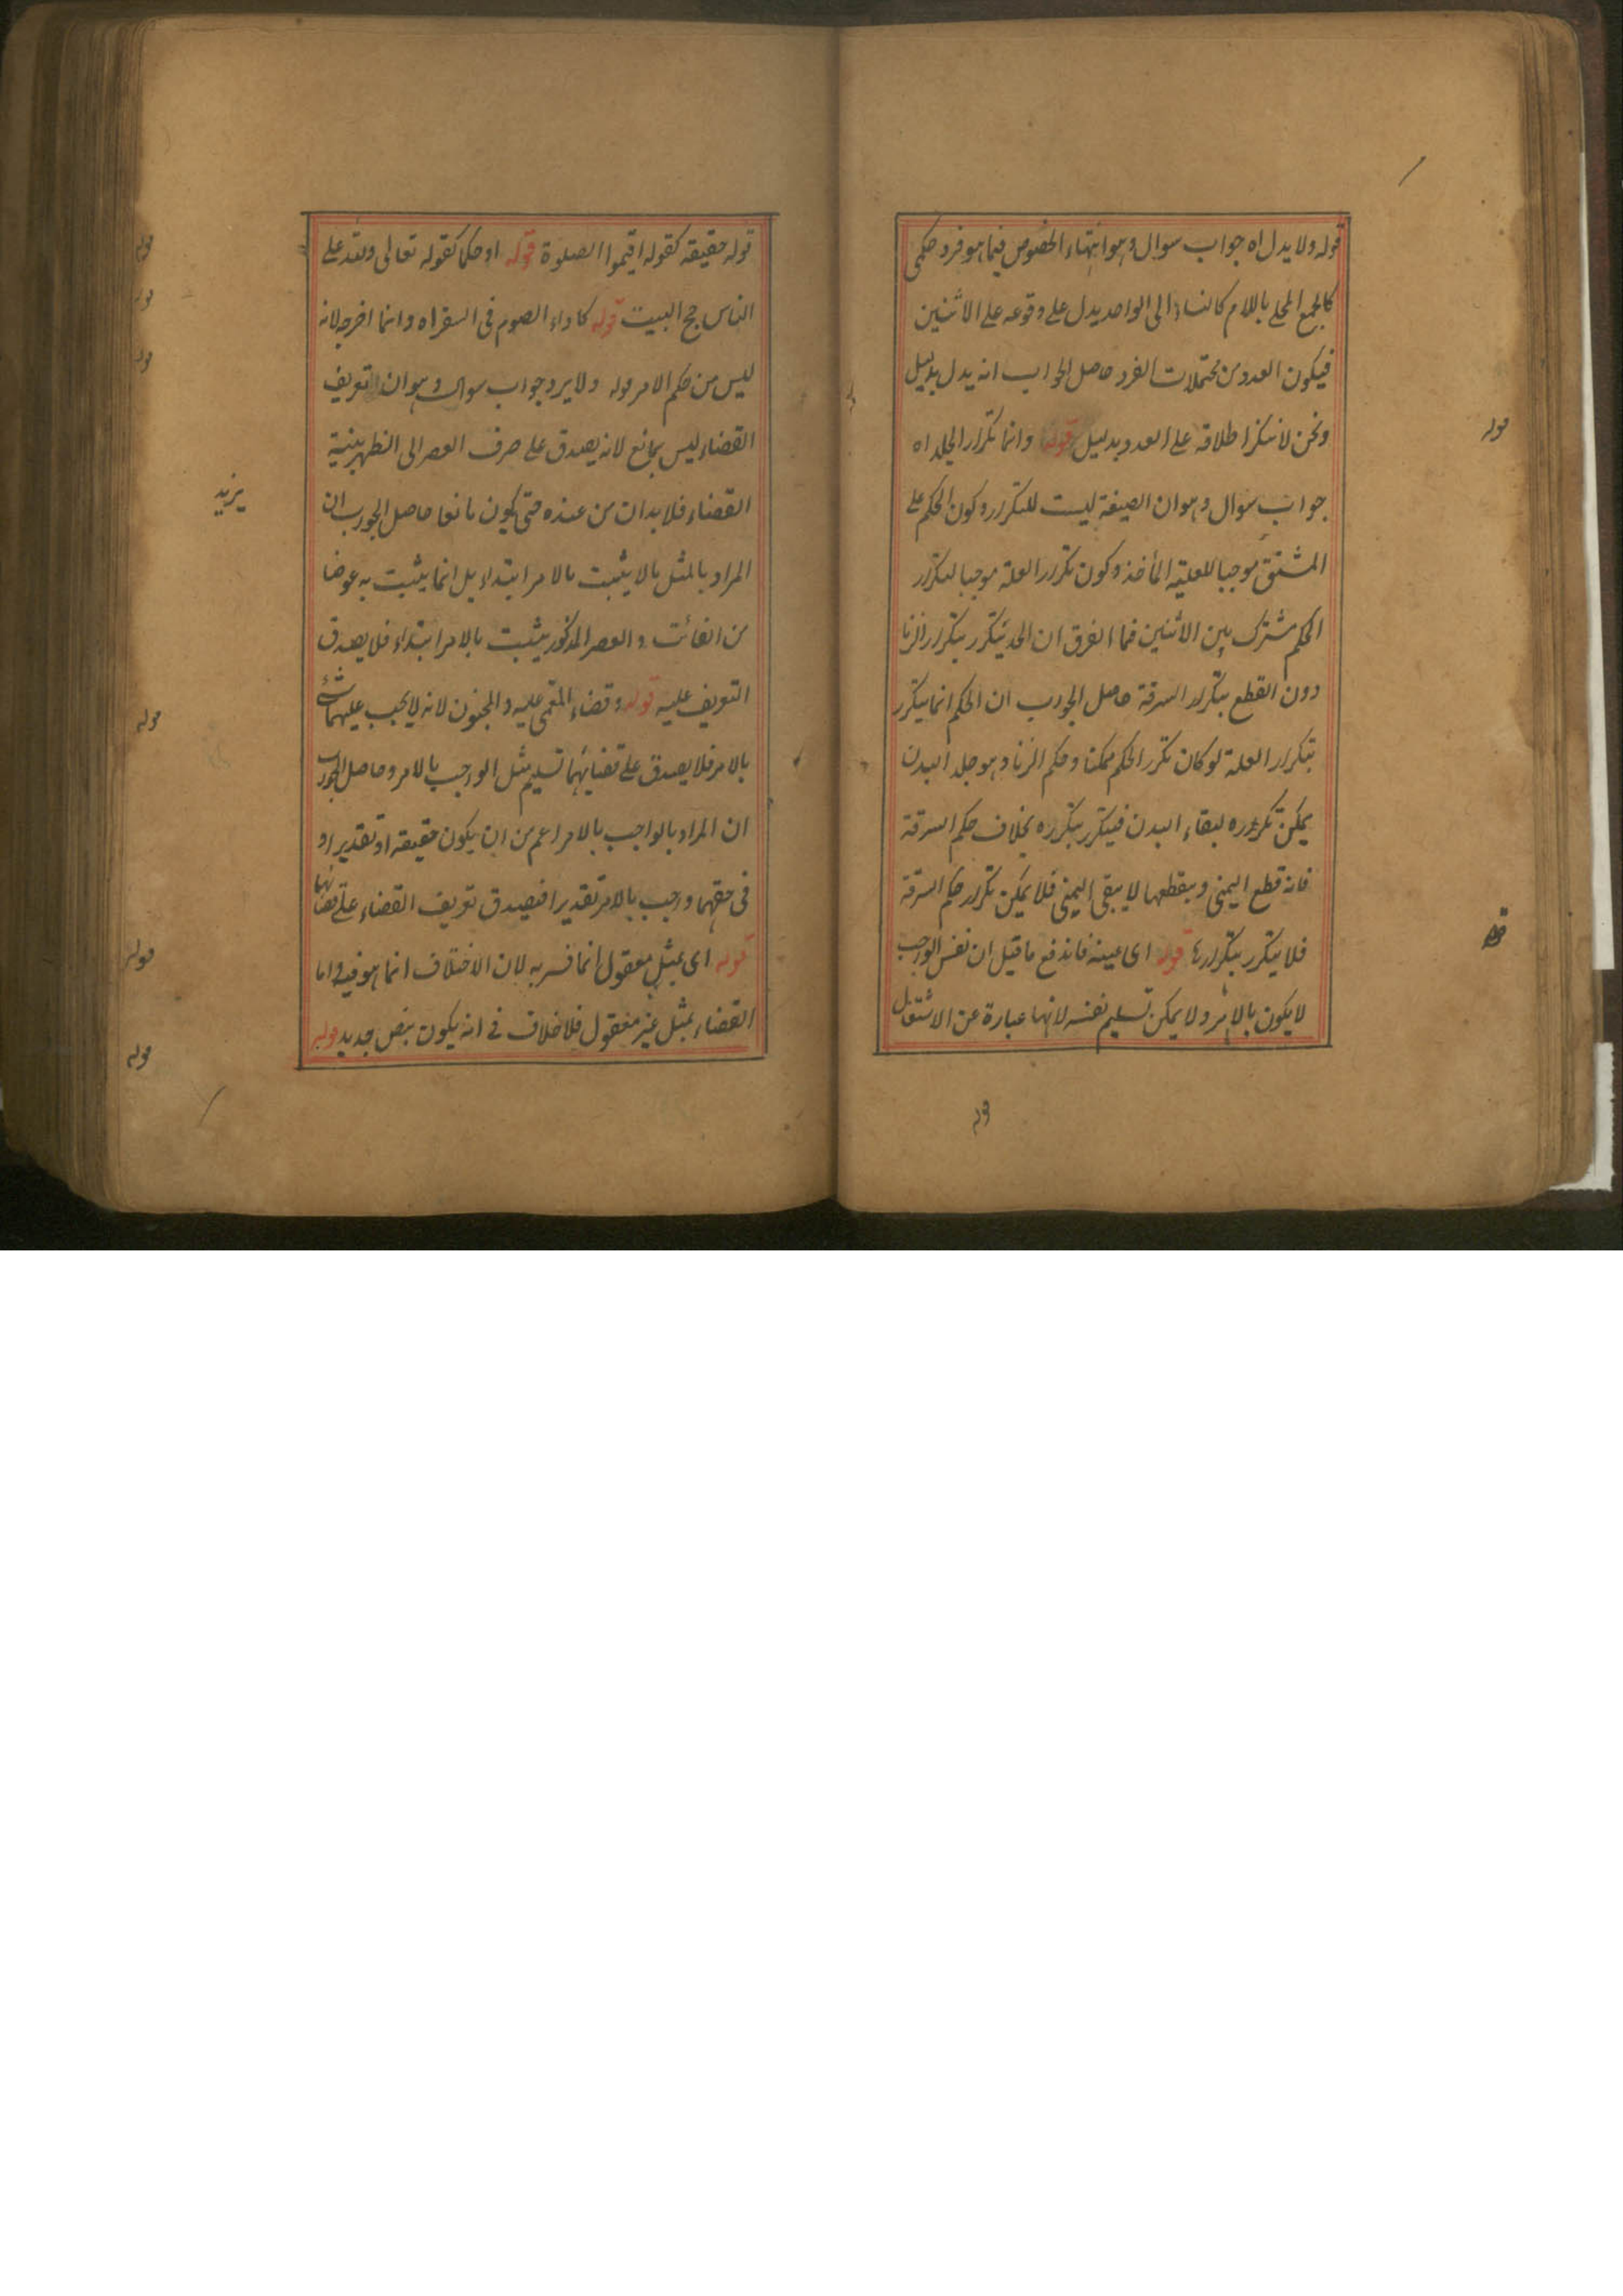 قوله ولا يدل اه جواب سوال وهو انتهاء الخصوص فيما هو فرد حكمى
كالجمع المحلى باللام كالنساء الى الواحد يدل على وقوعه على الاثنين
فيكون العدد من محتملات الفرد حاصل الجواب انه يدل بدليل
ونحن لا ننكر اطلاقه على العدد بدليل قوله وانما تكرار الجلد اه
جواب سوال وهو ان الصيغة ليست للتكرر وكون الحكم على
المشتق موجبا للعلية المأخذ وكون تكرار العلة موجبا لتكرار
الحكم مشترك بين الاثنين فما الفرق ان الحد يتكرر بتكرار الزنا
دون القطع بتكرار السرقة حاصل الجواب ان الحكم انما يتكرر
بتكرار العلة لو كان تكرر الحكم ممكنا وحكم الزنا وهو جلد البدن
يمكن تكرره لبقاء البدن فيتكرر بتكرره بخلاف حكم السرقة
فانه قطع اليمنى وبقطعها لا يبقى اليمنى فلا يمكن تكرار حكم السرقة
فلا يتكرر بتكرارها قوله اى عينه فاندفع ما قيل ان نفس الواجب
لا يكون بالامر ولا يمكن تسليم نفسه لانها عبارة عن الاشتغال
قوله
قوله حقيقة كقوله اقيموا الصلوة قوله او حكما كقوله تعالى ولله على
الناس حج البيت قوله كاداء الصوم فى السفر اه وانما اخرجه لانه
ليس من حكم الامر قوله ولا يرد جواب سوال وهو ان التعريف
القضاء ليس بمانع لانه يصدق على صرف العصر الى الظهر بنية
القضاء فلا بد ان من عنده حتى يكون مانعا حاصل الجواب ان
المراد بالمثل ما لا يثبت بالامر ابتداء بل انما يثبت به عوضا
من الفائت والعصر المذكور يثبت بالامر ابتداء فلا يصدق
التعريف عليه قوله وقضاء المغمى عليه والمجنون لانه لا يجب عليهما شئ
بالامر فلا يصدق على قضائهما تسليم مثل الواجب بالامر وحاصل الجواب
ان المراد بالواجب بالامر اعم من ان يكون حقيقة او تقديرا و
فى حقهما واجب بالامر تقديرا فيصدق تعريف القضاء على قضائها
قوله اى بمثل معقول انما فسر به لان الاختلاف انما هو فيه واما
القضاء بمثل غير معقول فلا خلاف فى انه يكون بنص جديد قوله
قوله
قوله
قوله
يزيد
قوله
قوله
قوله